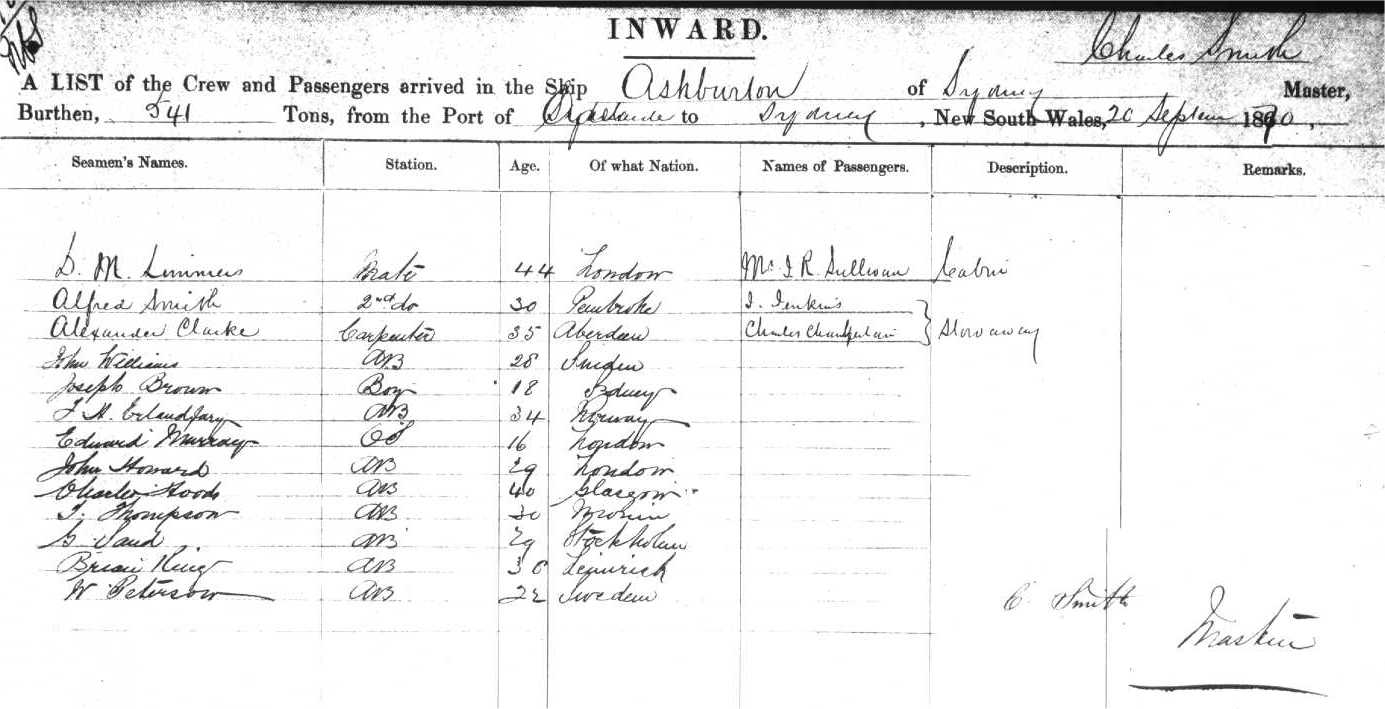 INWARD.
Charles Smith
A LIST of the Crew and Passengers arrived in the Ship Ashburton of Sydney Master,
Burthen, 541 Tons, from the Port of to Sydney, New South Wales, 20 Septem 1870,
Seamen's Names. Station. Age. Of what Nation. Names of Passengers. Description. Remarks.
D. M. Mate 44 London Mr J. R. Sullivan Cabin
Alfred Smith 2nd do 30 Pembroke J. Jenkins
Alexander Clarke Carpenter 35 Aberdeen Charles Chamberlain Stowaway
John Williams AB 28 Sweden
Joseph Brown Boy 18 Sydney
AB 34 Norway
Edward Murray OS 16 London
John Howard AB 29 London
Charles AB 40 Glasgow
T. Thompson AB 30
G Sand AB 29 Stockholm
Brian King AB 36 Limrick
W Peterson AB 22 Sweden
C. Smith
Master